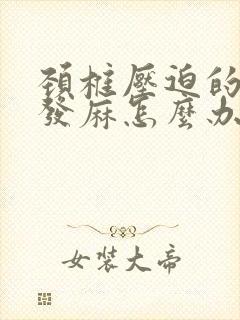 頚椎壓迫的
發麻怎麼办
女裝大帝